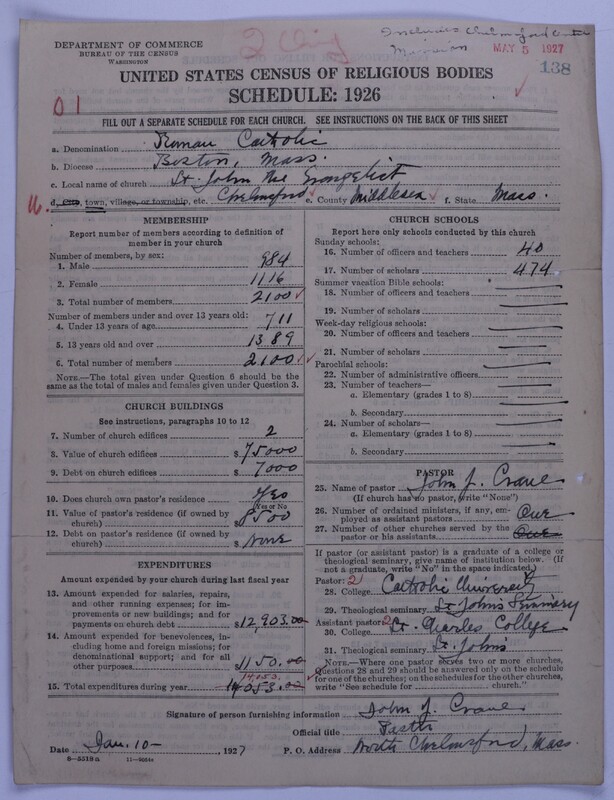 DEPARTMENT OF COMMERCE
BUREAU OF THE CENSUS
WASHINGTON
Includes Chelmford Center
Mission
MAY 5 1927
138
UNITED STATES CENSUS OF RELIGIOUS BODIES
SCHEDULE: 1926
01
FILL OUT A SEPARATE SCHEDULE FOR EACH CHURCH. SEE INSTRUCTIONS ON THE BACK OF THIS SHEET
a. Denomination Roman Catholic
b. Diocese Boston, Mass.
c. Local name of church St. John the Evangelist
d. City, town, village, or township, etc. Chelmsford e. County Middlesex f. State Mass.
MEMBERSHIP
Report number of members according to definition of member in your church
Number of members, by sex:
1. Male 984
2. Female 1116
3. Total number of members 2100
Number of members under and over 13 years old:
4. Under 13 years of age 711
5. 13 years old and over 1389
6. Total number of members 2100
NOTE.—The total given under Question 6 should be the same as the total of males and females given under Question 3.
CHURCH BUILDINGS
See instructions, paragraphs 10 to 12
7. Number of church edifices 2
8. Value of church edifices $75000
9. Debt on church edifices $7000
10. Does church own pastor's residence Yes
(Yes or No)
11. Value of pastor's residence (if owned by church) $8500
12. Debt on pastor's residence (if owned by church) $None
EXPENDITURES
Amount expended by your church during last fiscal year
13. Amount expended for salaries, repairs, and other running expenses; for improvements or new buildings; and for payments on church debt $12,903.00
14. Amount expended for benevolences, including home and foreign missions; for denominational support; and for all other purposes $1150.00
14,053
15. Total expenditures during year 14053.00
CHURCH SCHOOLS
Report here only schools conducted by this church
Sunday schools:
16. Number of officers and teachers 40
17. Number of scholars 474
Summer vacation Bible schools:
18. Number of officers and teachers
19. Number of scholars
Week-day religious schools:
20. Number of officers and teachers
21. Number of scholars
Parochial schools:
22. Number of administrative officers
23. Number of teachers—
a. Elementary (grades 1 to 8)
b. Secondary
24. Number of scholars—
a. Elementary (grades 1 to 8)
b. Secondary
PASTOR
25. Name of pastor John J. Crane
(If church has no pastor, write "None")
26. Number of ordained ministers, if any, employed as assistant pastors One
27. Number of other churches served by the pastor or his assistants One
If pastor (or assistant pastor) is a graduate of a college or theological seminary, give name of institution below. (If not a graduate, write "No" in the space indicated.)
Pastor: 2
28. College Catholic University
29. Theological seminary St John's Seminary
Assistant pastor: 2
30. College St. Charles College
31. Theological seminary St. John's
NOTE.—Where one pastor serves two or more churches, Questions 28 and 29 should be answered only on the schedule for one of the churches; on the schedules for the other churches, write "See schedule for ........ church."
Signature of person furnishing information John J. Crane
Official title Pastor
Date Jan. 10- 1927 P. O. Address North Chelmsford, Mass.
8—5519a 11—9064a